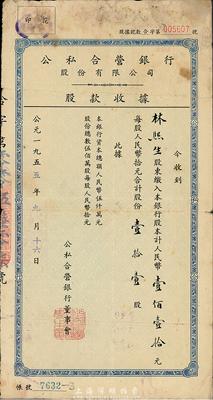 印花
股據號數合字第005607號
公私合營銀行
股份有限公司
股款收據
今收到
林熙生股東繳入本銀行股本計人民幣壹佰壹拾元
每股人民幣拾元合計股份壹拾壹股
此據
本銀行資本總額人民幣伍仟萬元
股份總數伍佰萬股每股人民幣拾元
公私合營銀行董事會
公元一九五五年九月十六日
帳號 7632-3